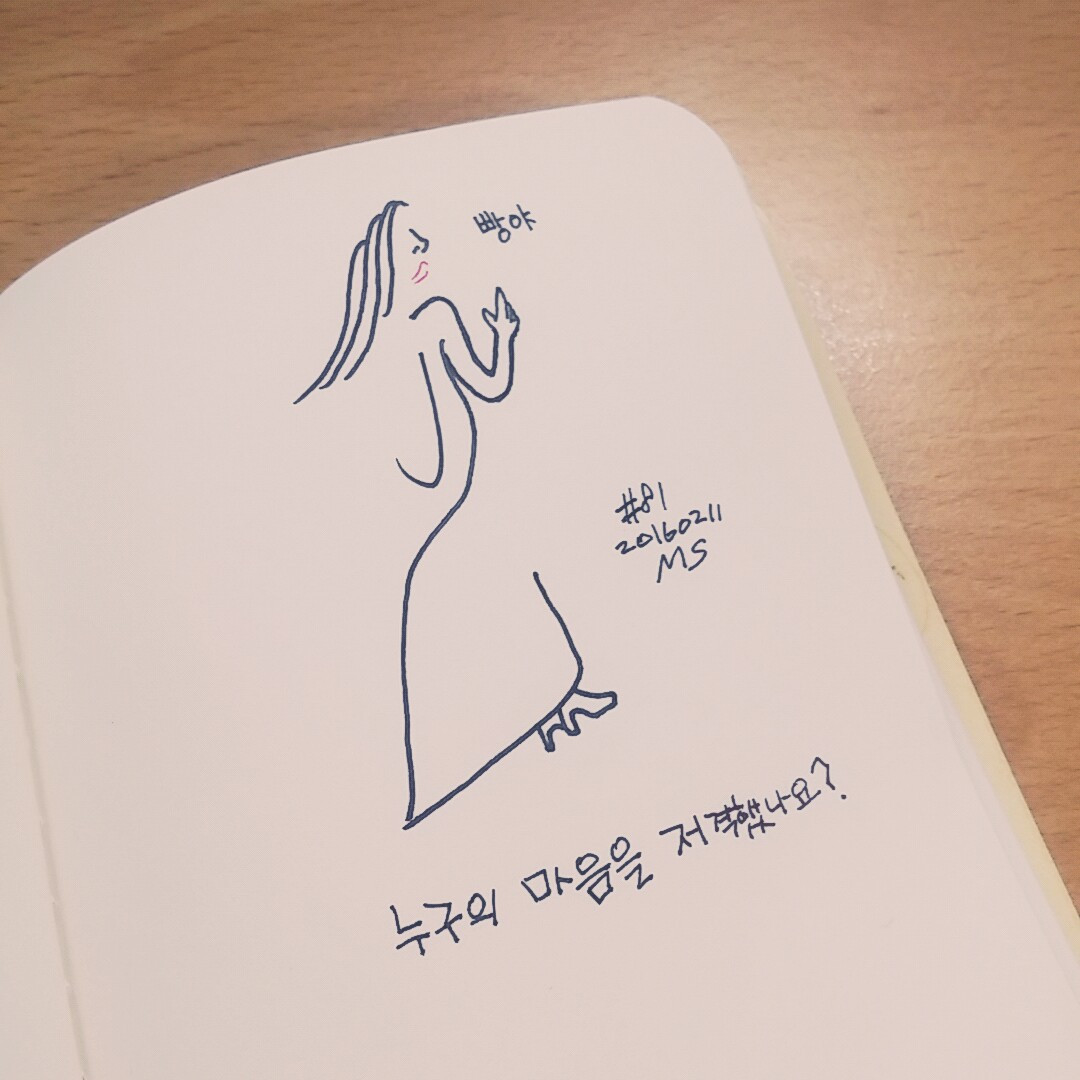 빵야
#81
20160211
MS
누구의 마음을 저격했나요?